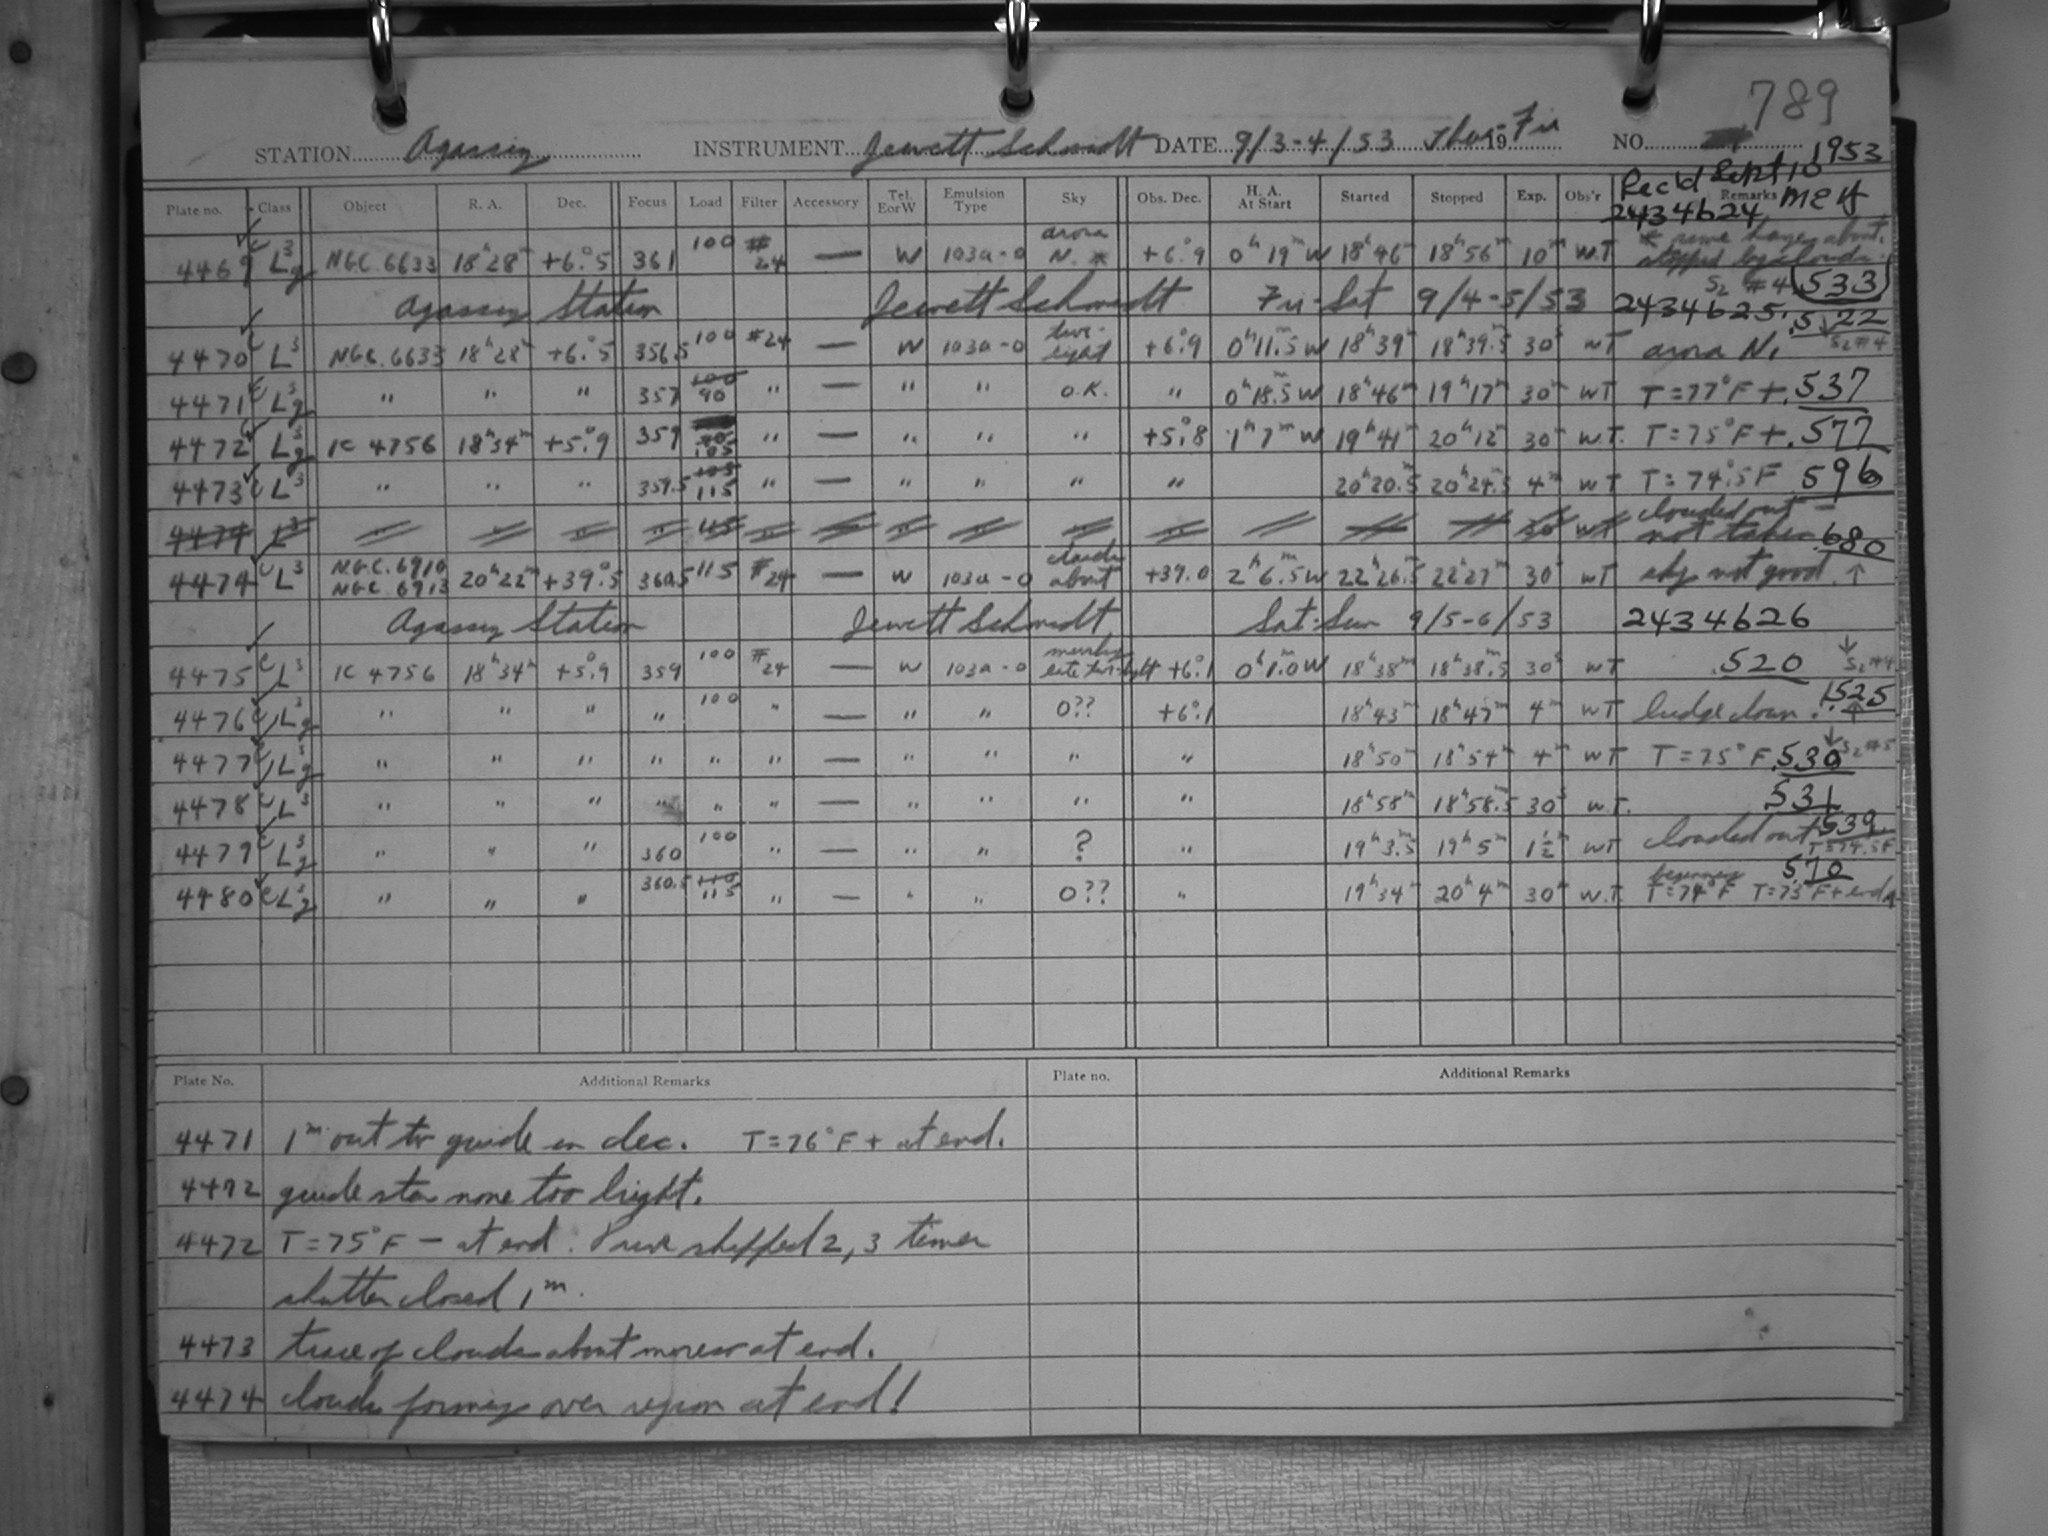 789
STATION Agassiz INSTRUMENT Jewett Schmidt DATE 9/3-4/53 Thur-Fri 19 NO.
Rec'd Sept 10 1953
MEH
Plate no. Class Object R. A. Dec. Focus Load Filter Accessory Tel. E or W Emulsion Type Sky Obs. Dec. H. A. At Start Started Stopped Exp. Obs'r Remarks
2434624
4469 C L3g NGC.6633 18h28m +6°.5 361 100 #24 — W 103a-0 arora N. * +6°.9 0h19mW 18h46m 18h56m 10m W.T * some haze about. stopped by clouds. S2 #4 .533
Agassiz Station Jewett Schmidt Fri-Sat 9/4-5/53 2434625.
4470 C L3 NGC.6633 18h28m +6°.5 356.5 100 #24 — W 103a-0 twi-light +6°.9 0h11m.5W 18h39m 18h39m.5 30s WT arora N. .522 S2#4
4471 C L3g " " " 357 100 90 " — " " O.K. " 0h18m.5W 18h46m 19h17m 30m WT T=77°F+ .537
4472 C L3g IC 4756 18h34m +5°.9 359 105 " — " " " +5°.8 1h7mW 19h41m 20h12m 30m W.T. T=75°F+ .577
4473 C L3 " " " 359.5 105 115 " — " " " " 20h20m.5 20h24m.5 4m WT T=74°.5F .596
4474 L3 " " " " 115 " — " " " " 30 WT clouded out – not taken
4474 C L3 NGC.6910 NGC.6913 20h22m +39°.5 360.5 115 #24 — W 103a-0 clouds about +39.0 2h6m.5W 22h26m.5 22h27m 30s WT sky not good. .680 ↑
Agassiz Station Jewett Schmidt Sat-Sun 9/5-6/53 2434626
4475 C L3 IC 4756 18h34m +5°.9 359 100 #24 — W 103a-0 late twi-light +6°.1 0h1.0mW 18h38m 18h38m.5 30s WT .520 ↓ S2#4
4476 C L3g " " " " 100 " — " " O?? +6°.1 18h43m 18h47m 4m WT .525 ↑
4477 C L3g " " " " " " — " " " " 18h50m 18h54m 4m WT T=75°F .530 ↓ S2#5
4478 C L3 " " " " " " — " " " " 18h58m 18h58m.5 30s W.T. .531
4479 C L3g " " " 360 100 " — " " ? " 19h3m.5 19h5m 1½m WT clouded out .539 T=74.5F
4480 C L3g " " " 360.5 110 115 " — " " O?? " 19h34m 20h4m 30m W.T. beginning T=74°F T=73°F+ end .570
Plate No. Additional Remarks Plate no. Additional Remarks
4471 1m out to guide in dec. T=76°F+ at end.
4472 guide star none too bright.
4472 T=75°F – at end. Drive stopped 2, 3 times
shutter closed 1m.
4473 trace of clouds about more so at end.
4474 clouds forming over region at end!